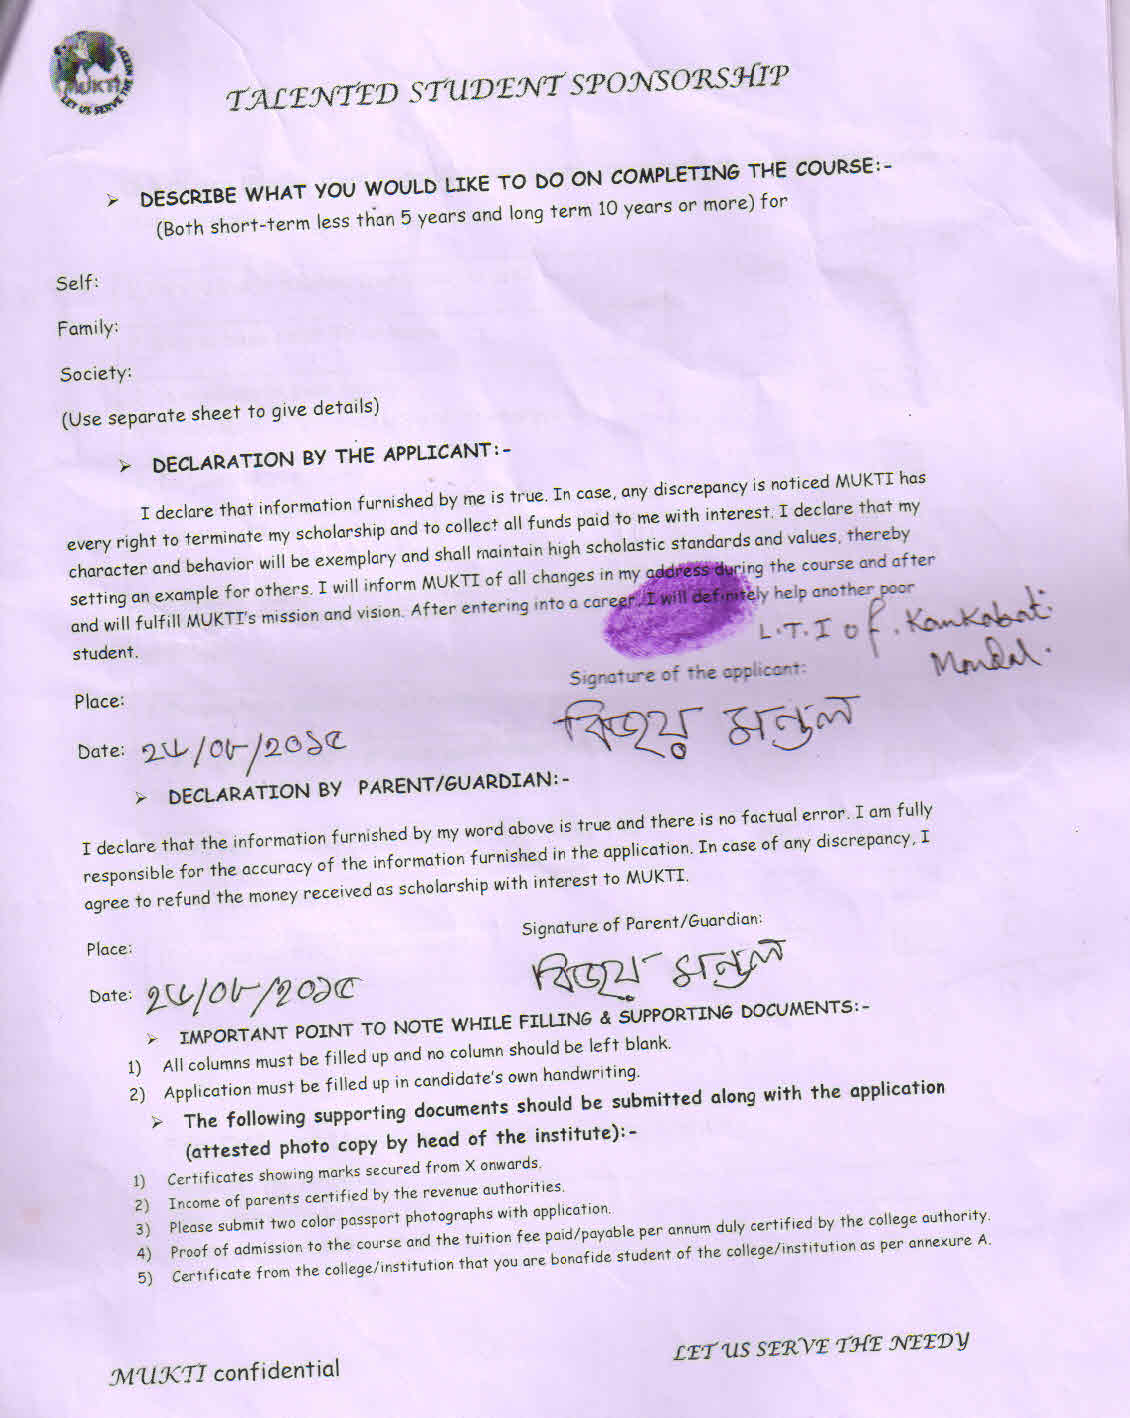 MUKTI
LET US SERVE THE NEEDY
TALENTED STUDENT SPONSORSHIP
➢ DESCRIBE WHAT YOU WOULD LIKE TO DO ON COMPLETING THE COURSE:-
(Both short-term less than 5 years and long term 10 years or more) for
Self:
Family:
Society:
(Use separate sheet to give details)
➢ DECLARATION BY THE APPLICANT:-
I declare that information furnished by me is true. In case, any discrepancy is noticed MUKTI has
every right to terminate my scholarship and to collect all funds paid to me with interest. I declare that my
character and behavior will be exemplary and shall maintain high scholastic standards and values, thereby
setting an example for others. I will inform MUKTI of all changes in my address during the course and after
and will fulfill MUKTI's mission and vision. After entering into a career, I will definitely help another poor
student.
L.T.I of. Kankabati
Mondal.
Signature of the applicant:
Place:
বিজয় মন্ডল
Date: ২৪/০৮/২০১৫
➢ DECLARATION BY PARENT/GUARDIAN:-
I declare that the information furnished by my word above is true and there is no factual error. I am fully
responsible for the accuracy of the information furnished in the application. In case of any discrepancy, I
agree to refund the money received as scholarship with interest to MUKTI.
Signature of Parent/Guardian:
Place:
বিজয় মন্ডল
Date: ২৪/০৮/২০১৫
➢ IMPORTANT POINT TO NOTE WHILE FILLING & SUPPORTING DOCUMENTS:-
1) All columns must be filled up and no column should be left blank.
2) Application must be filled up in candidate's own handwriting.
➢ The following supporting documents should be submitted along with the application
(attested photo copy by head of the institute):-
1) Certificates showing marks secured from X onwards.
2) Income of parents certified by the revenue authorities.
3) Please submit two color passport photographs with application.
4) Proof of admission to the course and the tuition fee paid/payable per annum duly certified by the college authority.
5) Certificate from the college/institution that you are bonafide student of the college/institution as per annexure A.
MUKTI confidential
LET US SERVE THE NEEDY